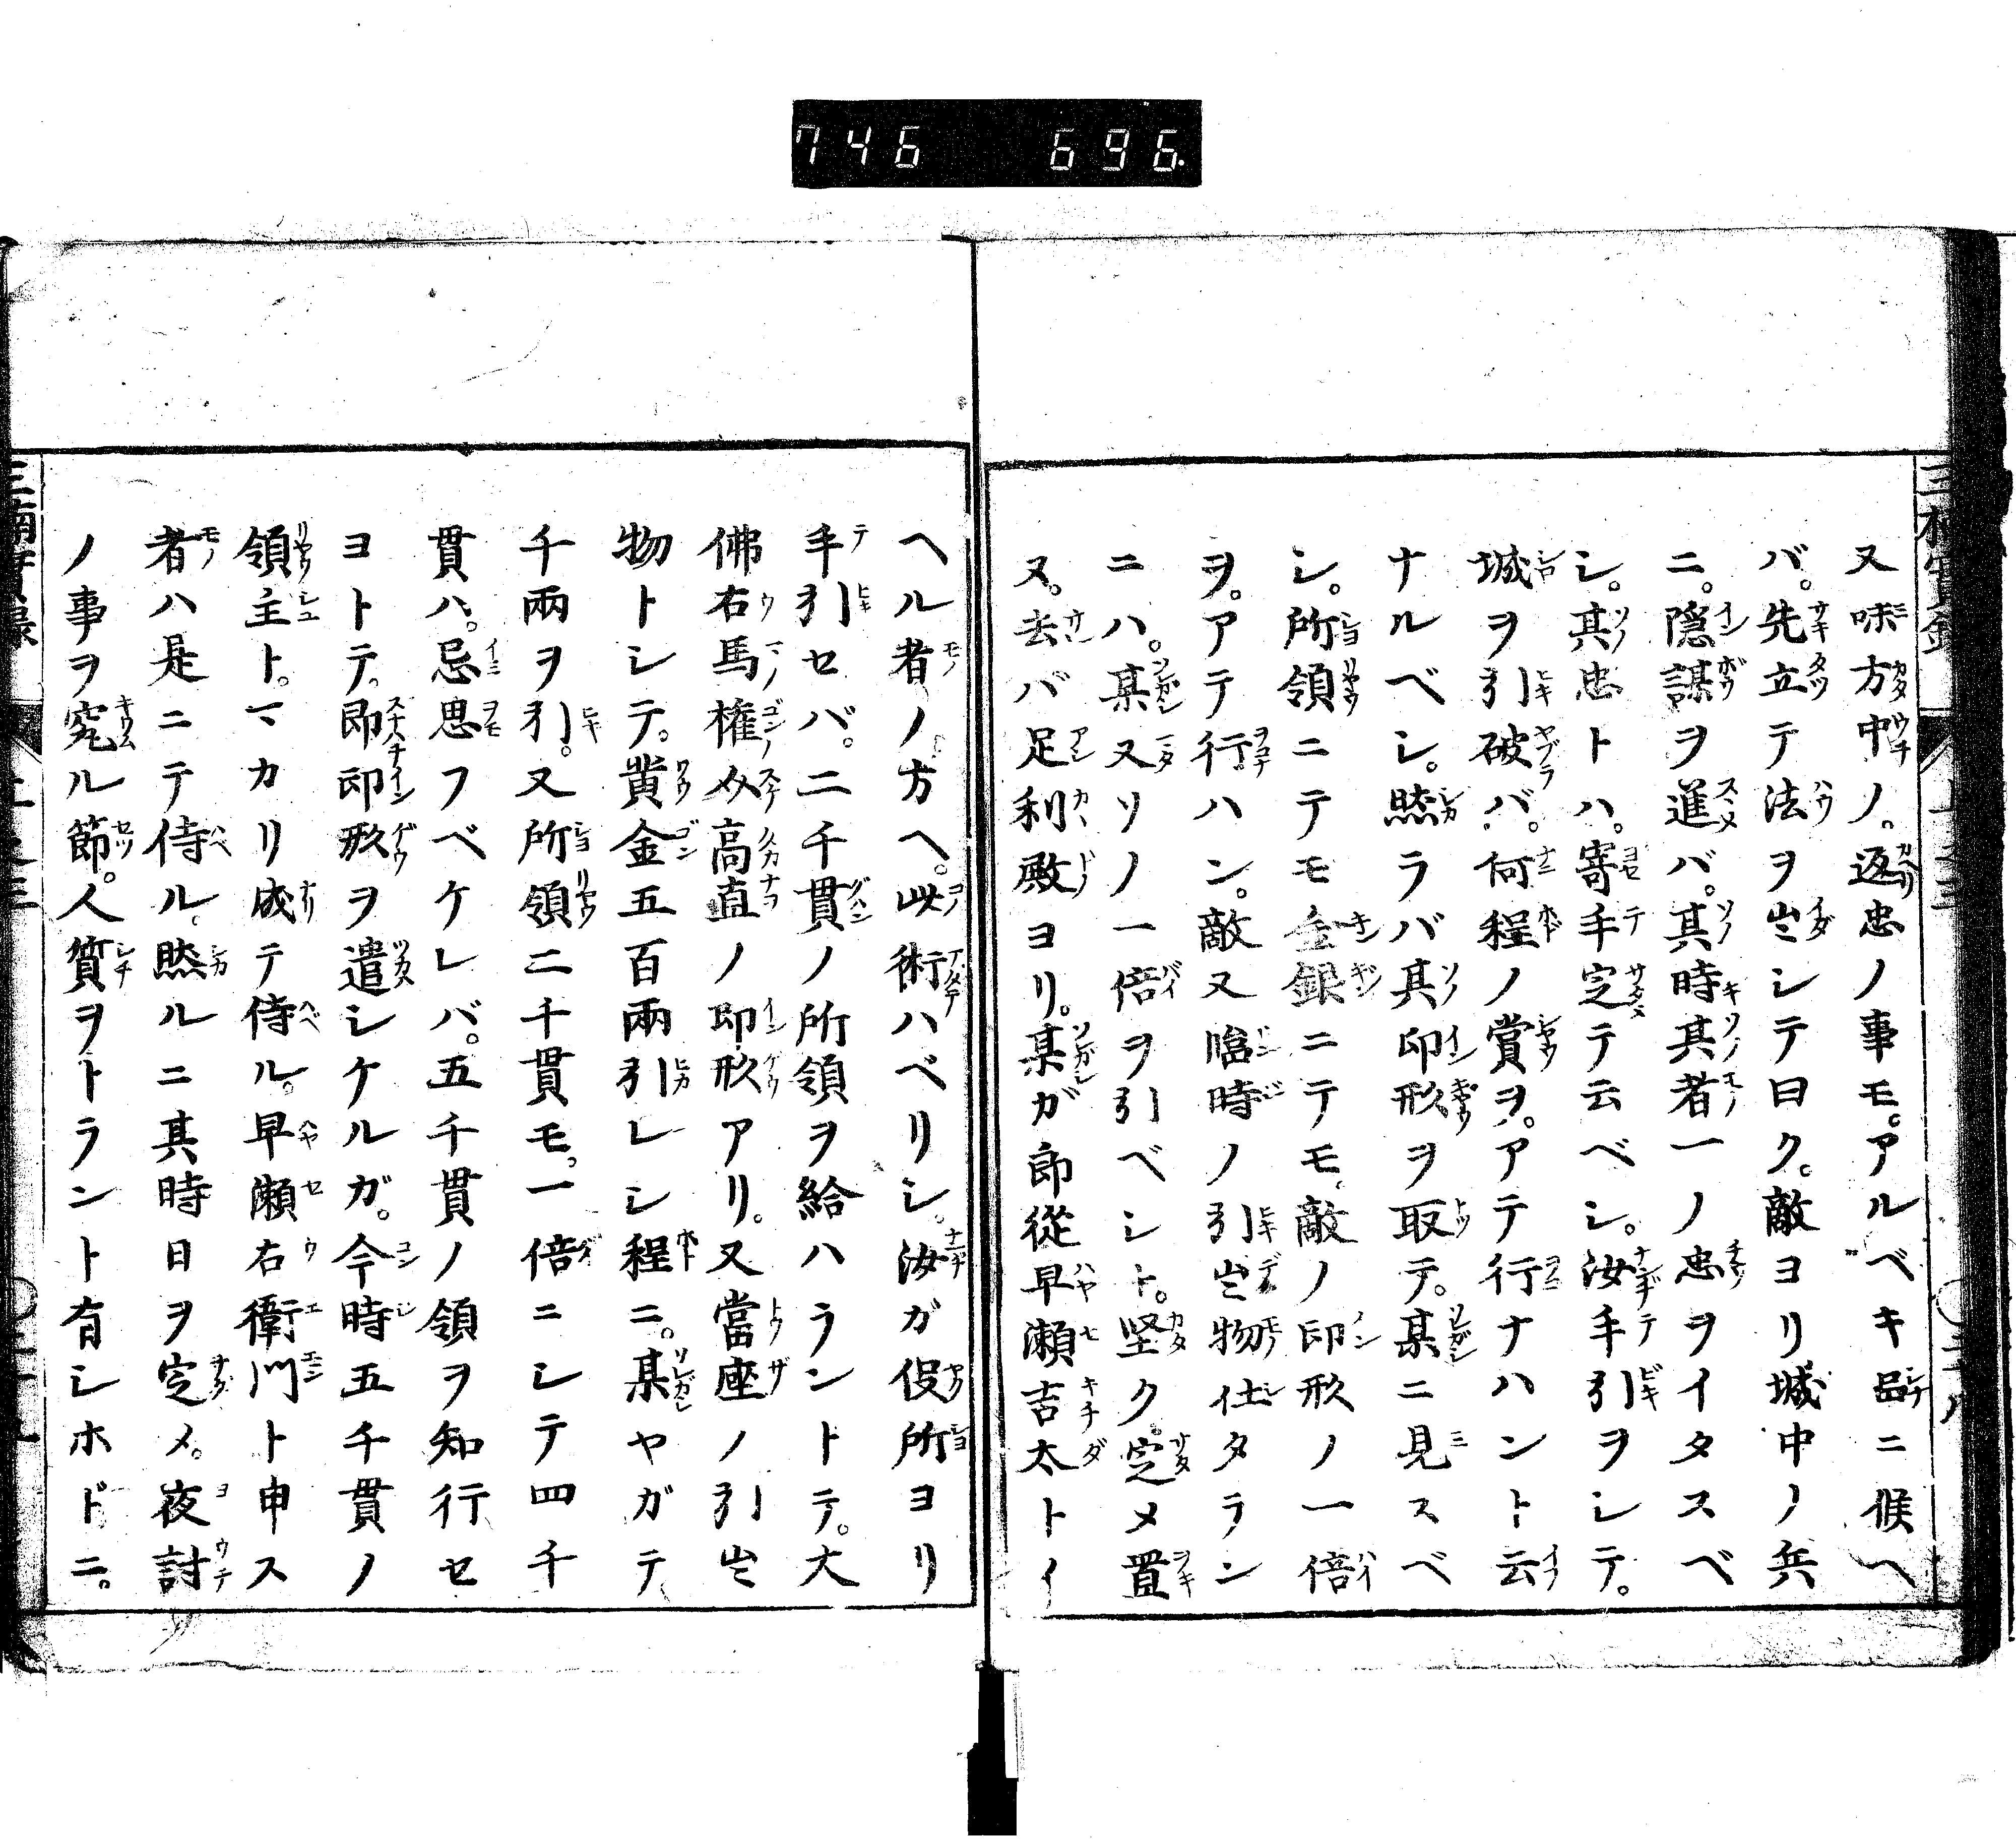 746 696.
又味方中ノ。返忠ノ事モ。アルベキ品ニ候ヘ
バ。先立テ法ヲ出シテ曰ク。敵ヨリ城中ノ兵
ニ。隠謀ヲ進メバ。其時其者一ノ忠ヲイタスベ
シ。其忠トハ。寄手定テ云ベシ。汝手引ヲシテ。
城ヲ引破バ。何程ノ賞ヲ。アテ行ナハント云
ナルベシ。然ラバ其印形ヲ取テ。某ニ見スベ
シ。所領ニテモ金銀ニテモ。敵ノ印形ノ一倍
ヲ。アテ行ハン。敵又臨時ノ引出物仕タラン
ニハ。某又ソノ一倍ヲ引ベシト。堅ク定メ置
ヌ。去バ足利殿ヨリ。某ガ郎從早瀬吉太トイ
ヘル者ノ方ヘ。此術ハベリシ。汝ガ役所ヨリ
手引セバ。二千貫ノ所領ヲ給ハラントテ。大
佛右馬權助高直ノ印形アリ。又當座ノ引出
物トシテ。黄金五百兩引レシ程ニ。某ヤガテ
千兩ヲ引。又所領二千貫モ。一倍ニシテ四千
貫ハ。忌思フベケレバ。五千貫ノ領ヲ知行セ
ヨトテ。即印形ヲ遣シケルガ。今時五千貫ノ
領主ト。マカリ成テ侍ル。早瀬右衛門ト申ス
者ハ是ニテ侍ル。然ルニ其時日ヲ定メ。夜討
ノ事ヲ究ル節。人質ヲトラント有シホドニ。